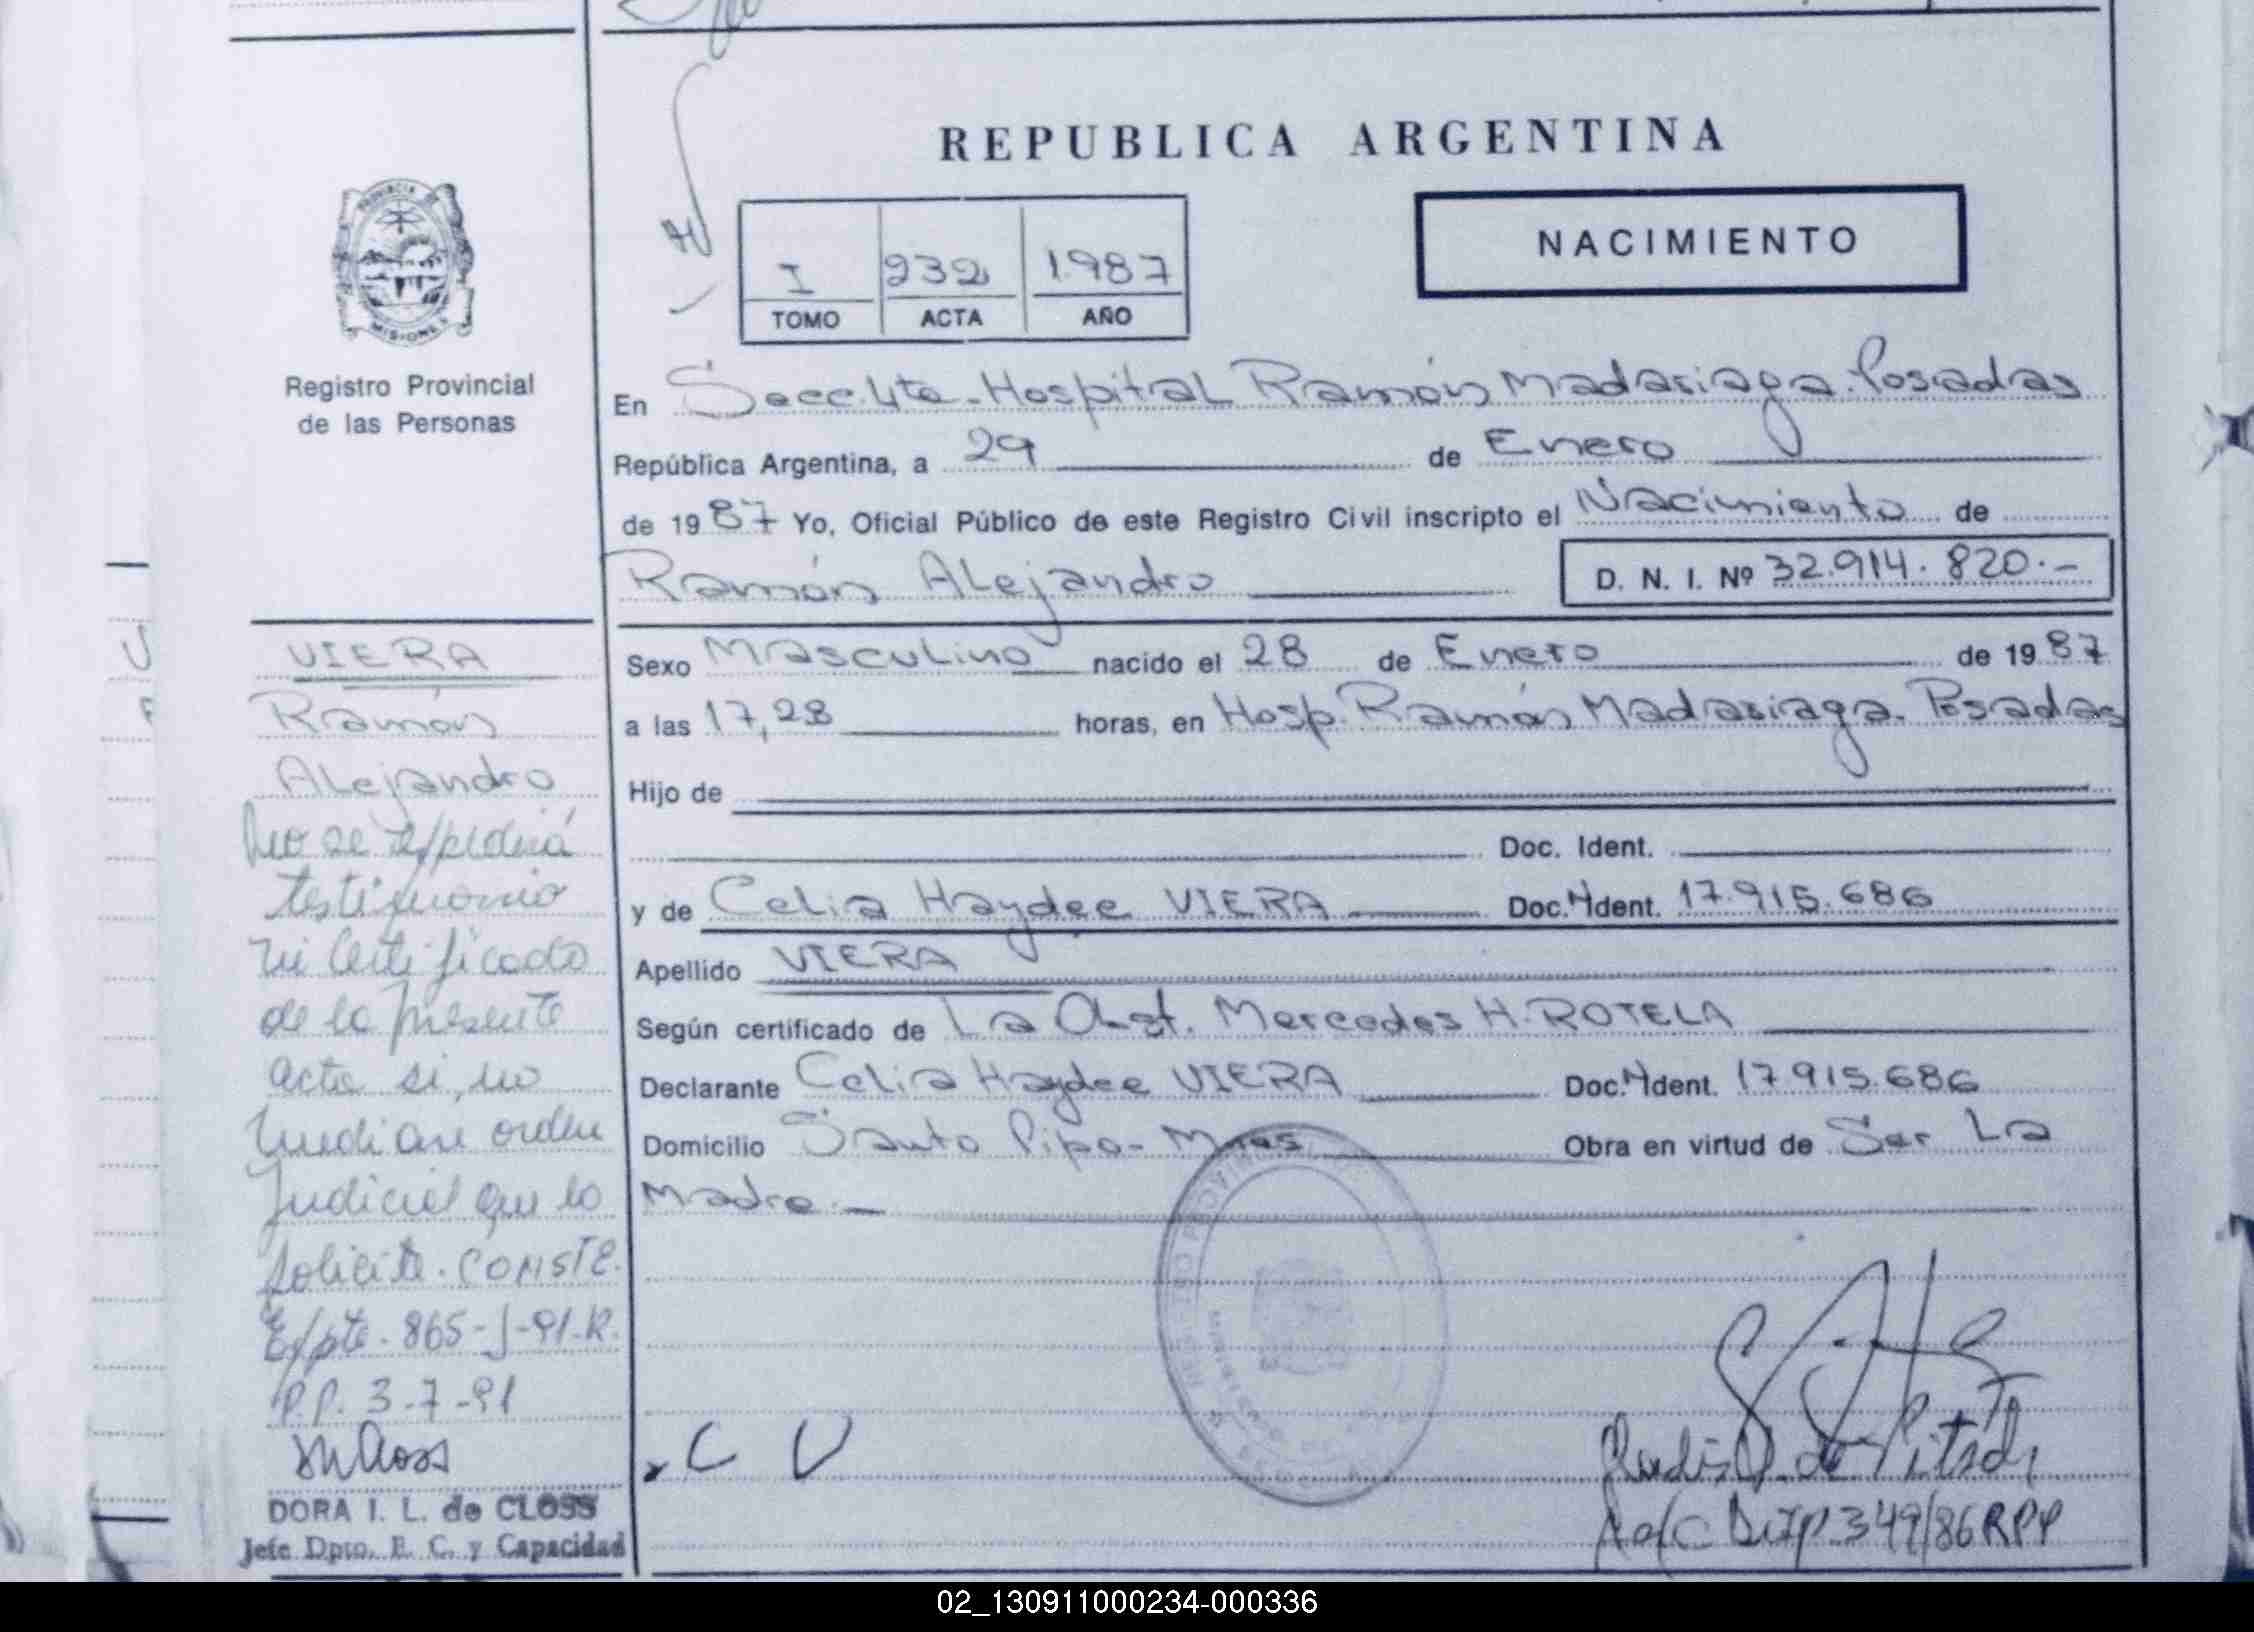 REPUBLICA ARGENTINA
PROVINCIA DE
MISIONES
Registro Provincial
de las Personas
NACIMIENTO
I 232 1987
TOMO ACTA AÑO
En Secc. 4ta. Hospital Ramón Madariaga. Posadas
República Argentina, a 29 de Enero
de 1987 Yo, Oficial Público de este Registro Civil inscripto el Nacimiento de
Ramón Alejandro D. N. I. Nº 32.914.820.-
Sexo Masculino nacido el 28 de Enero de 1987
a las 17,28 horas, en Hosp. Ramón Madariaga. Posadas
Hijo de
Doc. Ident.
y de Celia Haydee VIERA Doc. Ident. 17.915.686
Apellido VIERA
Según certificado de La Obst. Mercedes H. ROTELA
Declarante Celia Haydee VIERA Doc. Ident. 17.915.686
Domicilio Santo Pipo - Mnes Obra en virtud de Ser La
Madre.-
C V
A/C Disp. 349/86 RPP
VIERA
Ramón
Alejandro
No se expedirá
testimonio
ni Certificado
de la presente
acta si, no
mediare orden
Judicial que lo
solicite. CONSTE.
Expte. 865-J-91-R.
P.P. 3-7-91
DORA I. L. de CLOSS
Jefe Dpto. E. C. y Capacidad
02_130911000234-000336